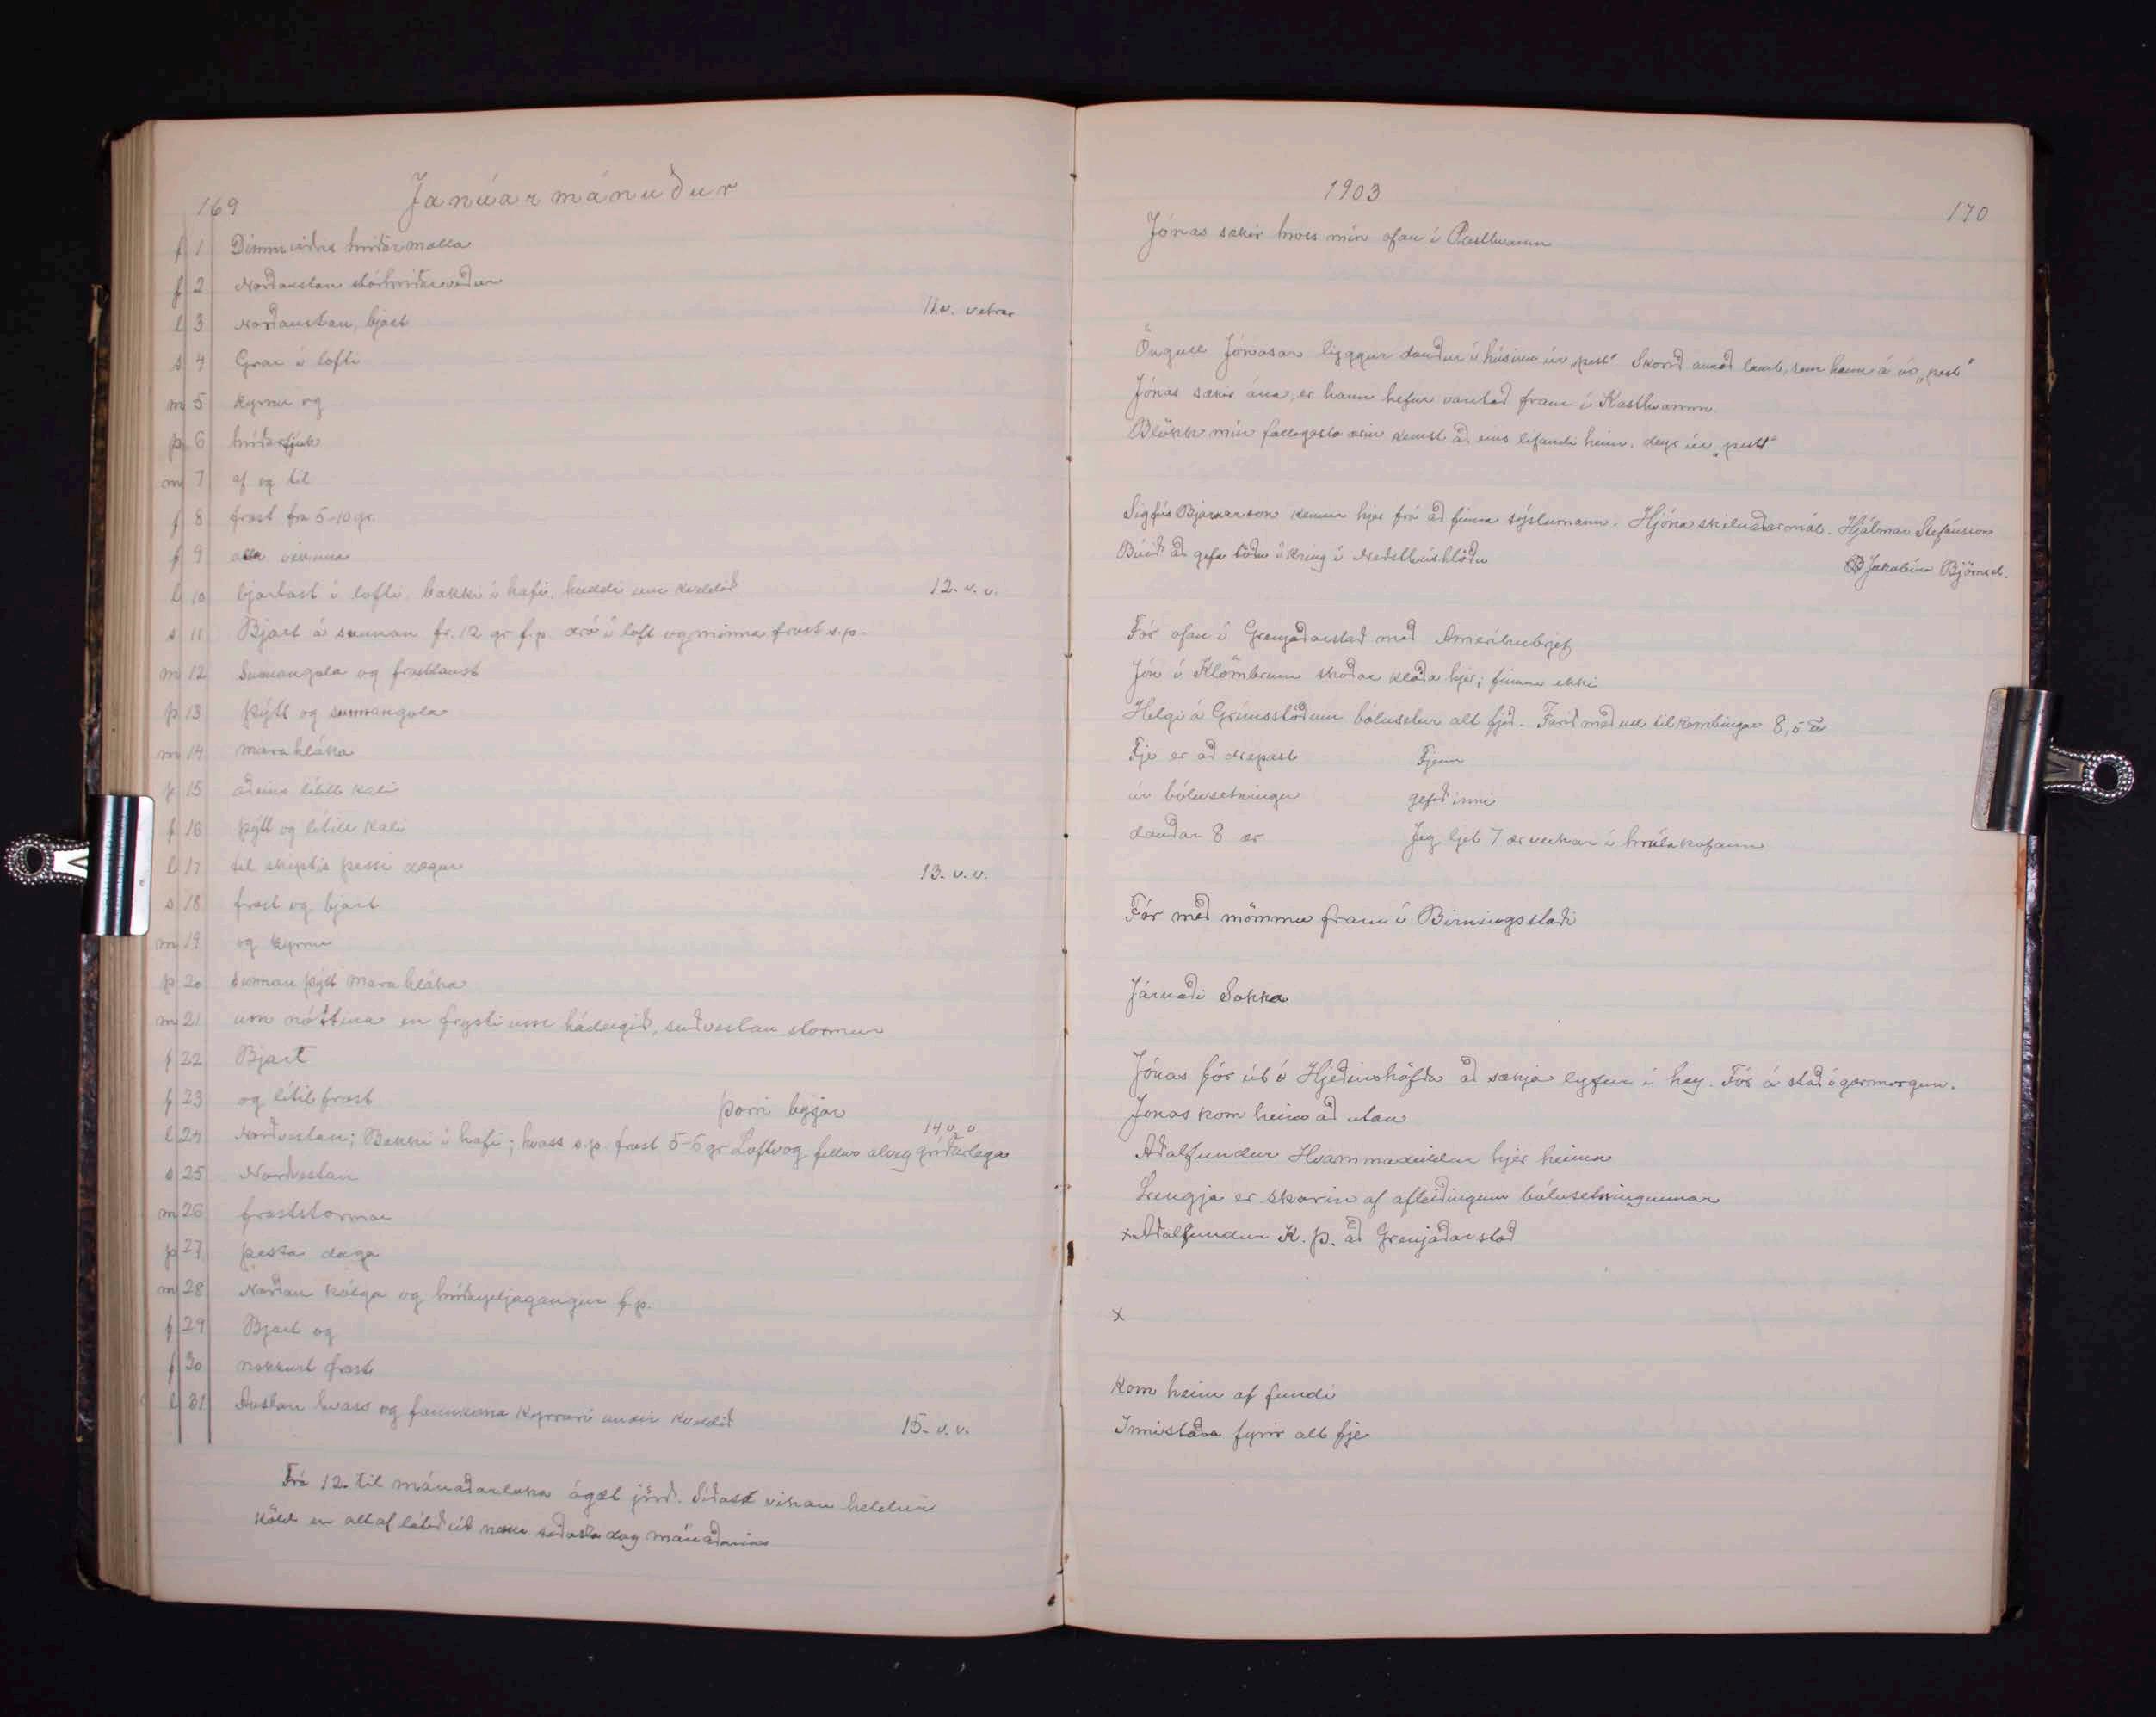 169
Janúarmánuður
f 1 Dimmviðris hríðarmolla
f 2 Norðaustan stórhríðarveður
l 3 Norðaustan, bjart 11.v. vetrar
s 4 Grár í lofti
m 5 kyrru og
þ 6 hríðarfjúk
m 7 af og til
f 8 frost frá 5-10 gr.
f 9 alla vikuna
l 10 bjartast í lofti, bakki í hafi, huldi um kveldið 12. v. v.
s 11 Bjart á sunnan fr. 12 gr f.p. og minna frost s.p.
m 12 Sunnangola og frostlaust
þ 13 þýtt og sunnangola
m 14 marahláka
f 15 aðeins lítill kali
f 16 þýtt og lítill kali
l 17 til skiptis þessi dægur 13. v. v.
s 18 frost og bjart
m 19 og kyrru
þ 20 sunnan þýtt marahláka
m 21 um nóttina en frysti um hádegið, suðvestan stormur
f 22 Bjart
f 23 og lítið frost Þorri byrjar
l 24 Norðvestan; Bakki í hafi; hvass s.p. frost 5-6 gr Loftvog fellur alveg gríðarlega 14 v. v
s 25 Norðvestan
m 26 froststormar
þ 27 þessa daga
m 28 Norðan kólga og hríðaréljagangur f.p.
f 29 Bjart og
f 30 nokkurt frost
l 31 Austan hvass og fannkoma kyrrari undir kveldið 15. v. v.
Frá 12. til mánaðarloka ágæt jörð. Síðast vikan heldur
köld en alt af látið út nema síðasta dag mánaðarins
1903
170
Jónas sækir hross mín ofan í Kasthvamm
Öngull Jónasar liggur dauður í húsinu úr „pest“ Skorið annað lamb, sem hann á úr „pest“
Jónas sækir ána, er hann hefur vantað fram í Kasthvamm
Blökk mín fallegasta ærin kemst að eins lifandi heim, deyr úr „pest“
Sigfús Bjarnarson kemur hjer frá að finna sýslumann. Hjónaskilnaðarmál. Hjálmar Stefánsson
Búið að gefa töðu í kring í Neðsthúshlöðu
Jakobína Björnsd.
Fór ofan í Grenjaðarstað með Ameríkubrjef
Jón í Klömbrum skoðar kláða hjer; finnur ekki
Helgi á Grímsstöðum bólusetur alt fjeð. Farið með ull til kembingar 8,5 ℔
Fje er að drepast Fjenu
úr bólusetningu gefið inni
dauðar 8 ær Jeg ljet 7 ær veikar í hrútakofann
Fór með mömmu fram í Birningsstaði
Járnaði Sokka
Jónas fór út í Hjeðinshöfða að sækja lyfjur í hey. Fór á stað í gærmorgun.
Jónas kom heim að utan
Aðalfundur Hvammadeildar hjer heima
Lengja er skorin af afleiðingum bólusetningunnar
x Aðalfundur K. Þ. að Grenjaðarstað
x
Kom heim af fundi
Innistaða fyrir alt fje